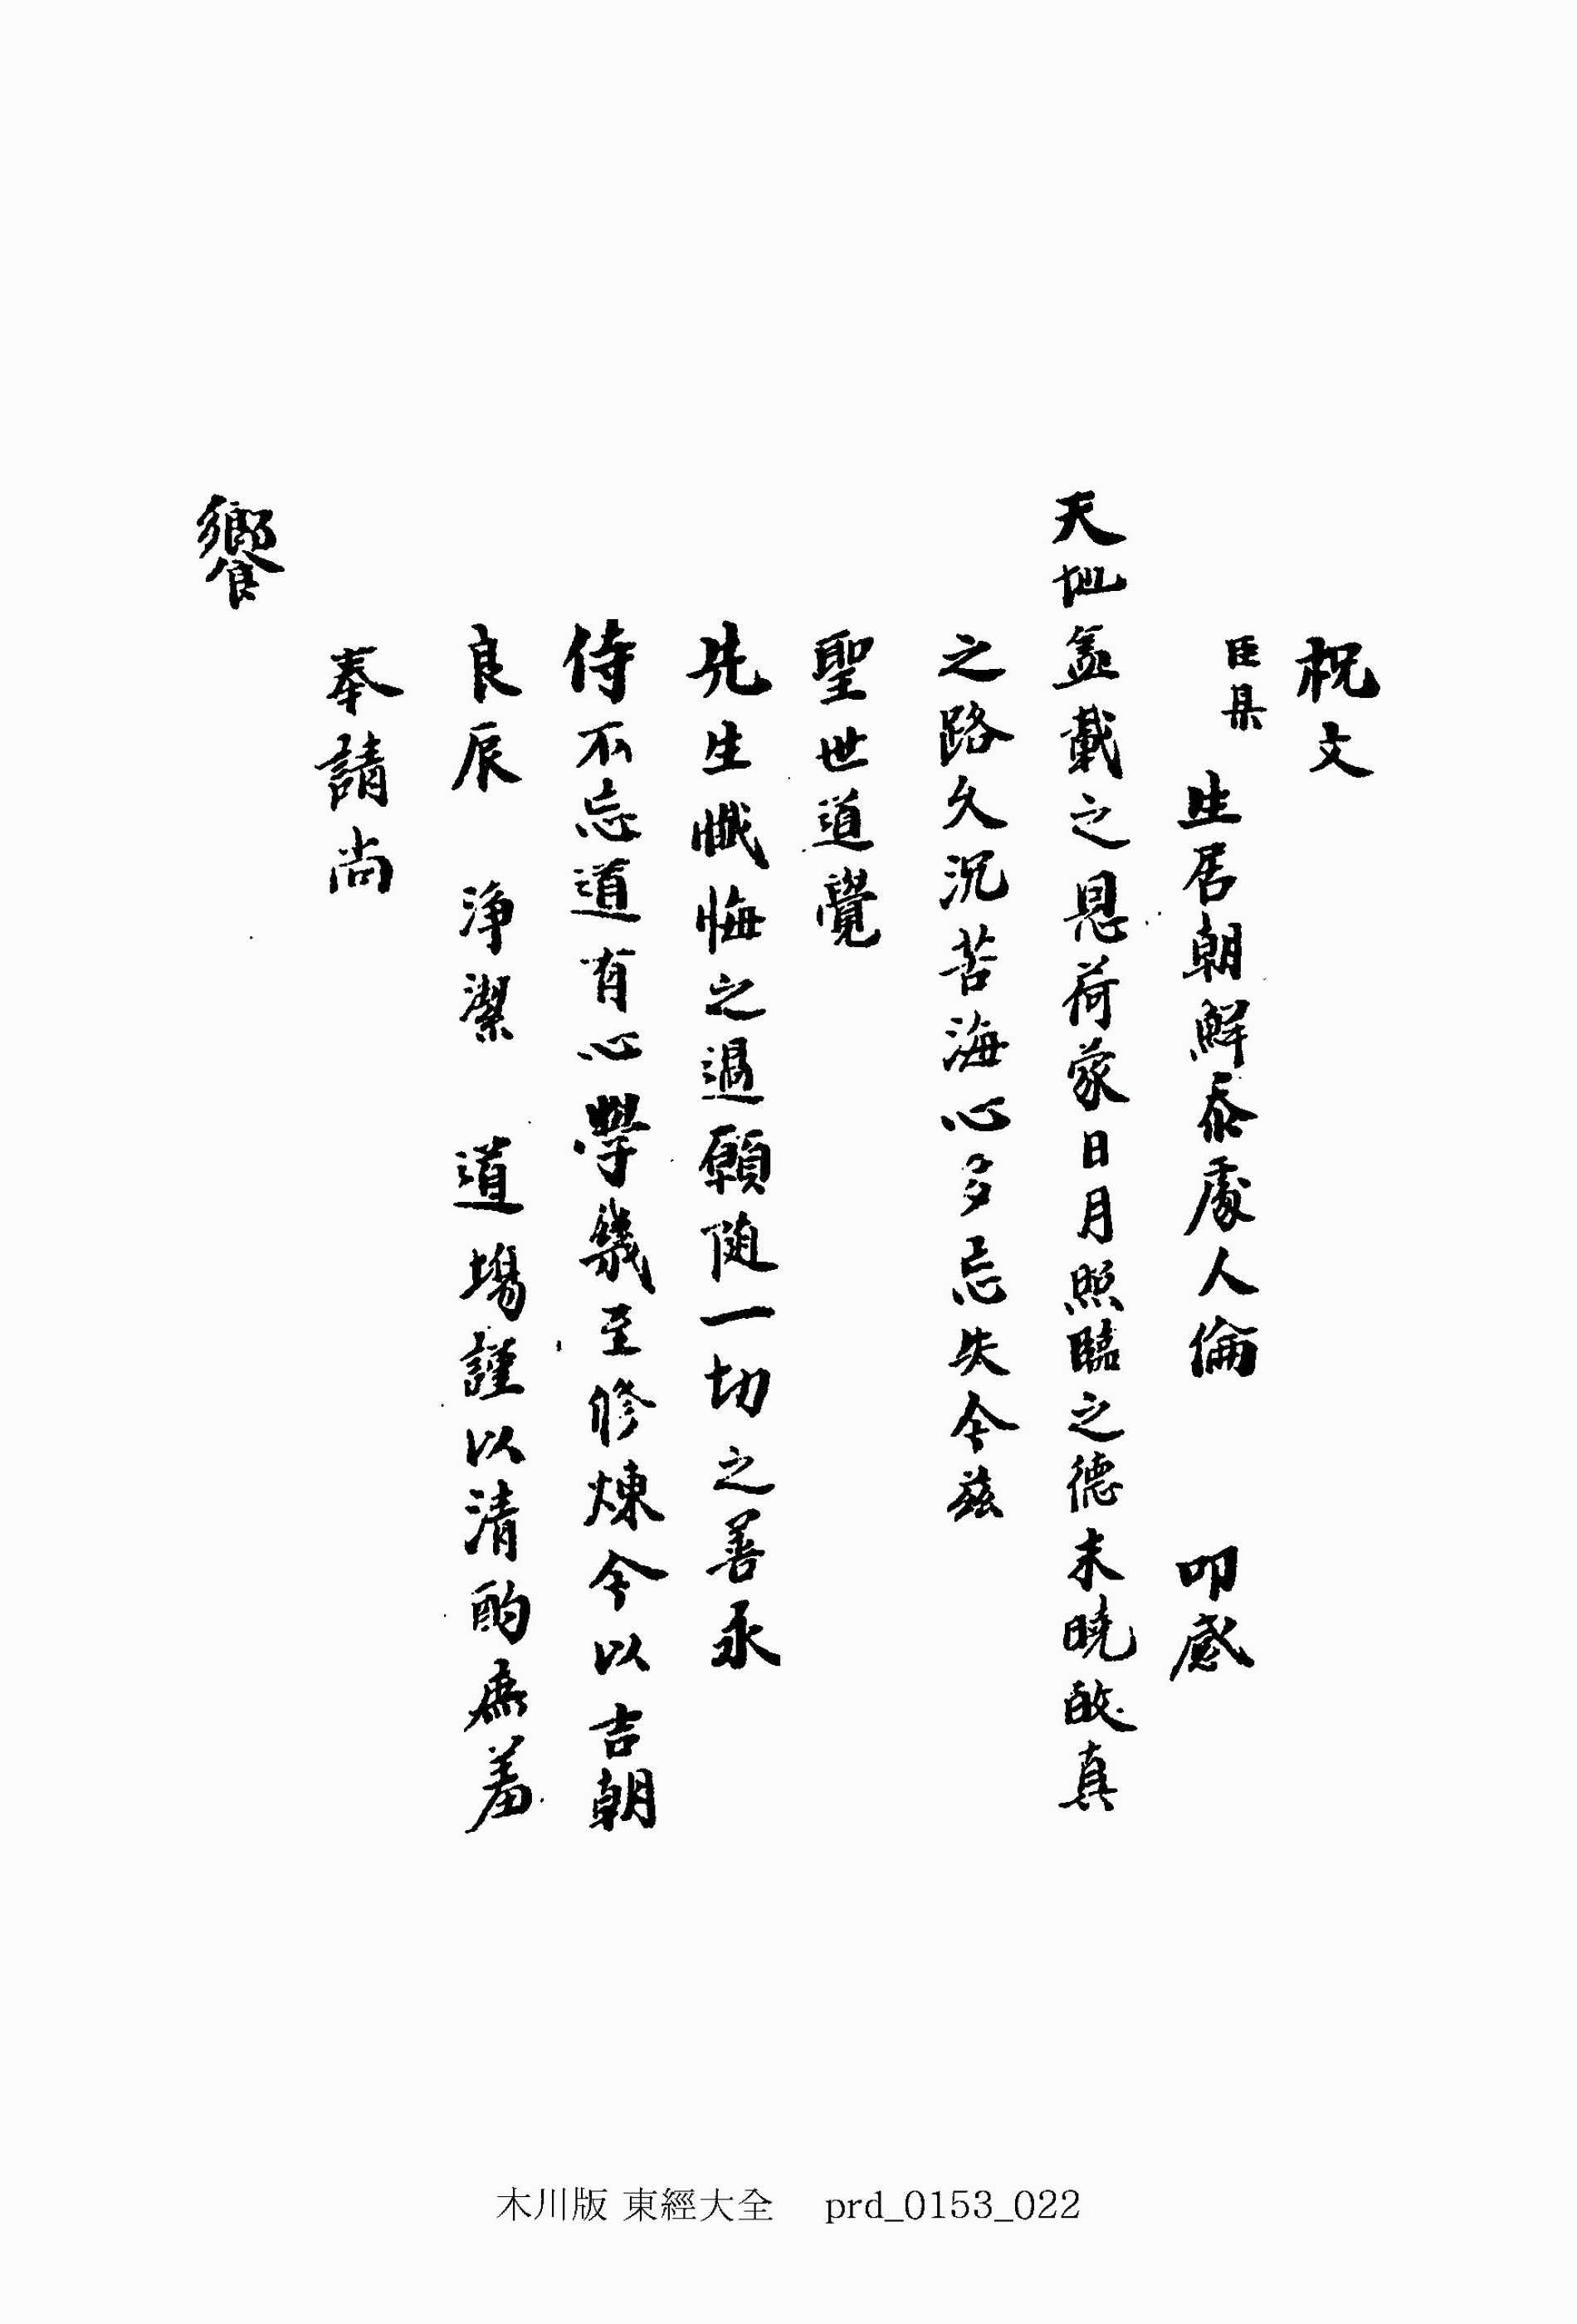 祝文
臣某 生居朝鮮忝處人倫 叩感
天地盖載之恩荷蒙日月照臨之德未曉歸真
之路久沉苦海心多忘失今兹
聖世道覺
先生懺悔之過願随一切之善永
侍不忘道有心學幾至修煉今以吉朝
良辰 淨潔 道場謹以清酌庶羞
奉請尚
饗
木川版 東經大全 prd_0153_022